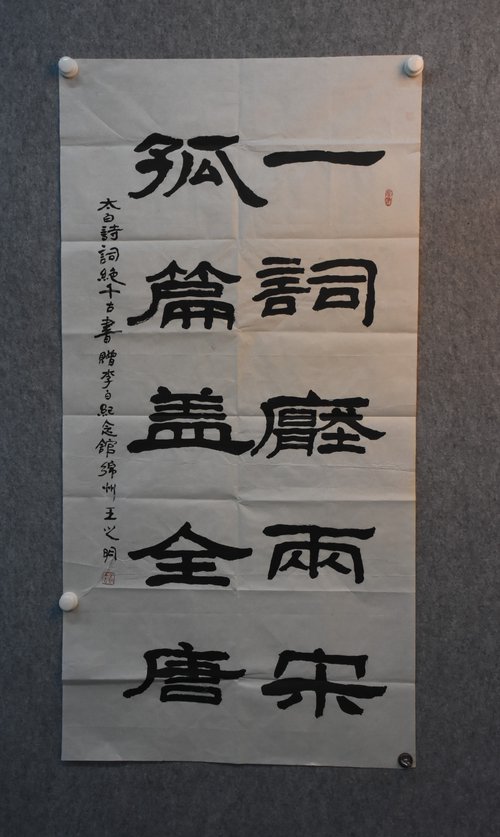 一詞壓兩宋
孤篇盖全唐
太白詩詞絶千古書贈李白紀念館綿州王之明